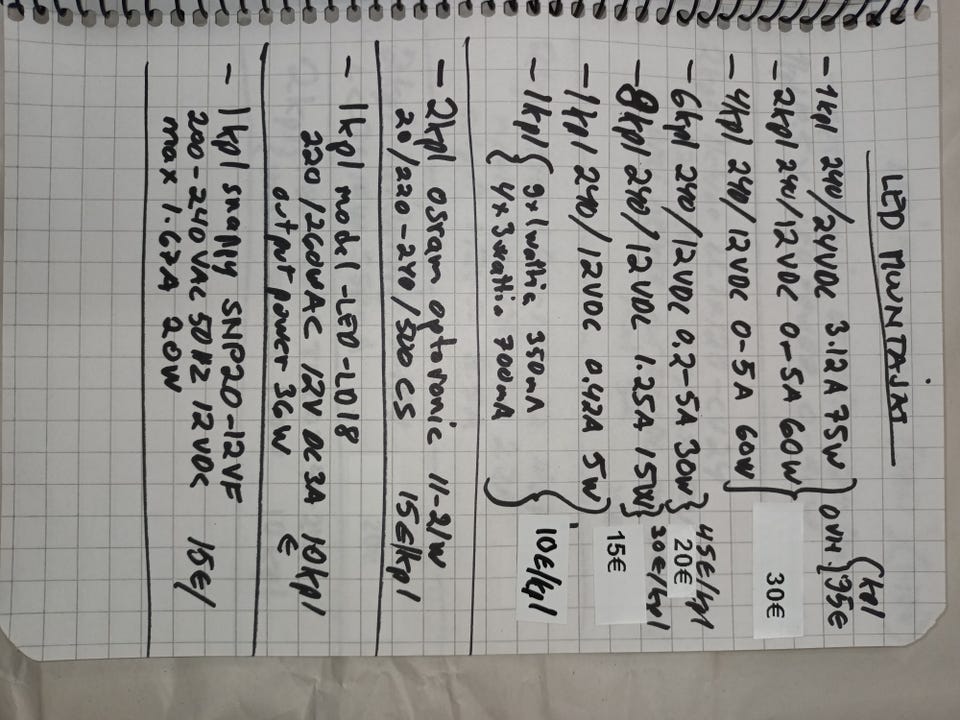 LED MUUNTAJAT
- 1kpl 240/24VDC 3.12A 75W } OVH. { 35€ kpl
- 2kpl 240/12VDC 0-5A 60W
- 4kpl 240/12VDC 0-5A 60W } 30€
- 6kpl 240/12VDC 0.2-5A 30W } 45€/kpl 20€
- 8kpl 240/12VDC 1.25A 15W } 30€/kpl 15€
- 1kpl 240/12VDC 0.42A 5W
- 1kpl { 9x1wattia 350mA
4x3wattia 700mA } 10€/kpl
- 2kpl osram optotronic 11-21W
20/220-240/500 CS 15€/kpl
- 1kpl model-LED-LD18
220/260VAC 12V DC 3A 10kpl
output power 36W €
- 1kpl snappy SNP20-12VF
200-240VAC 50HZ 12VDC 15€/
max 1.67A 20W